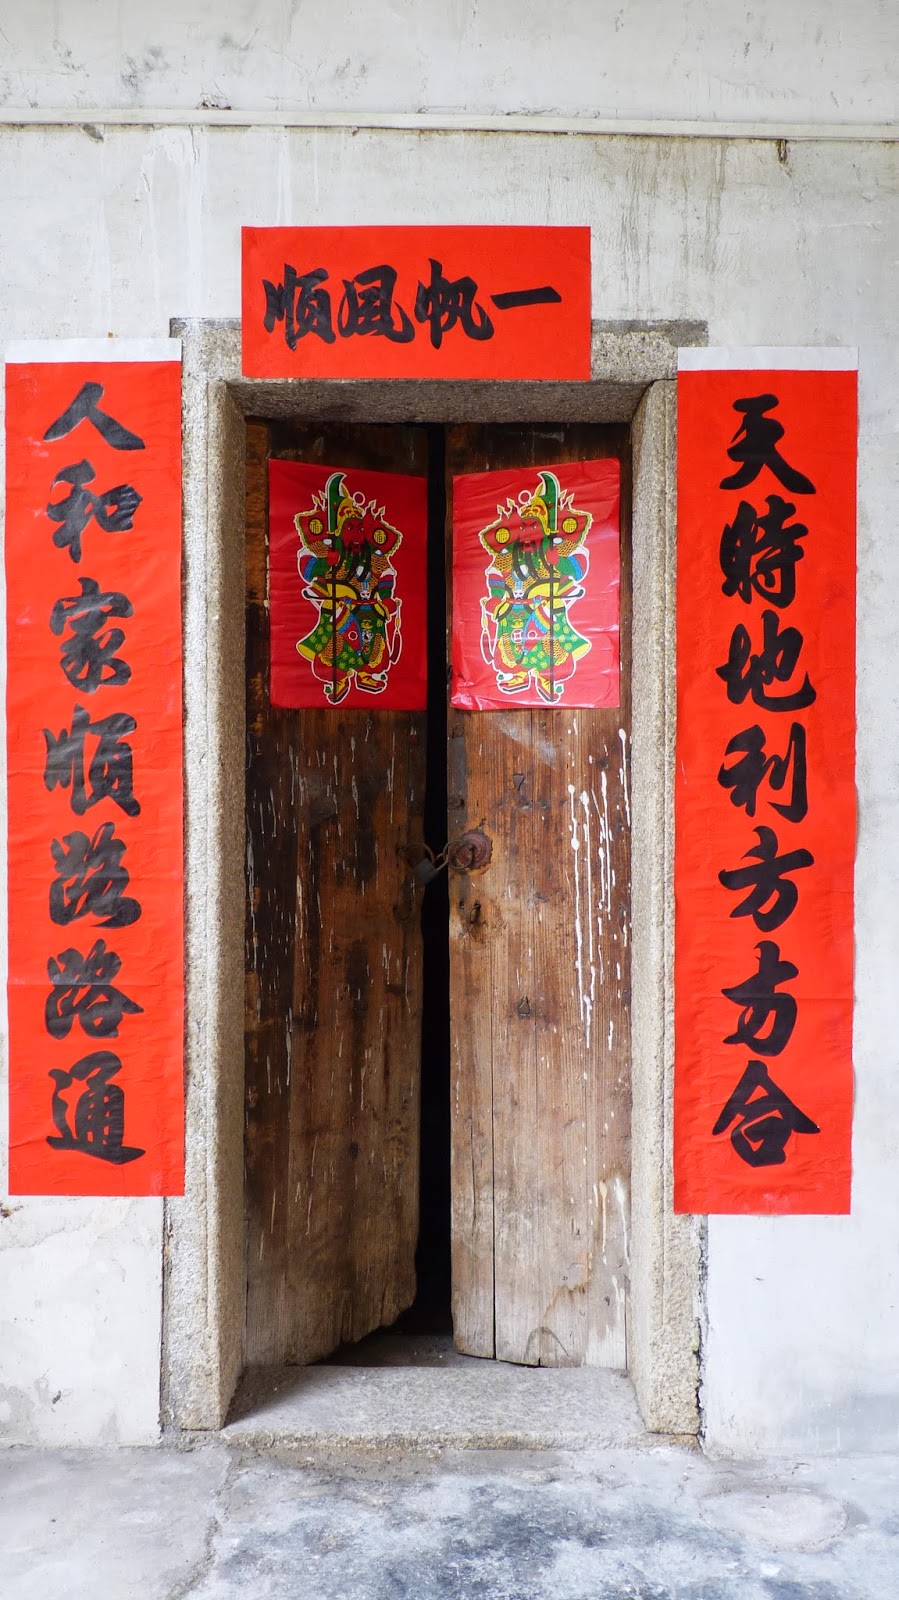 一帆風順
天時地利方方合
人和家順路路通